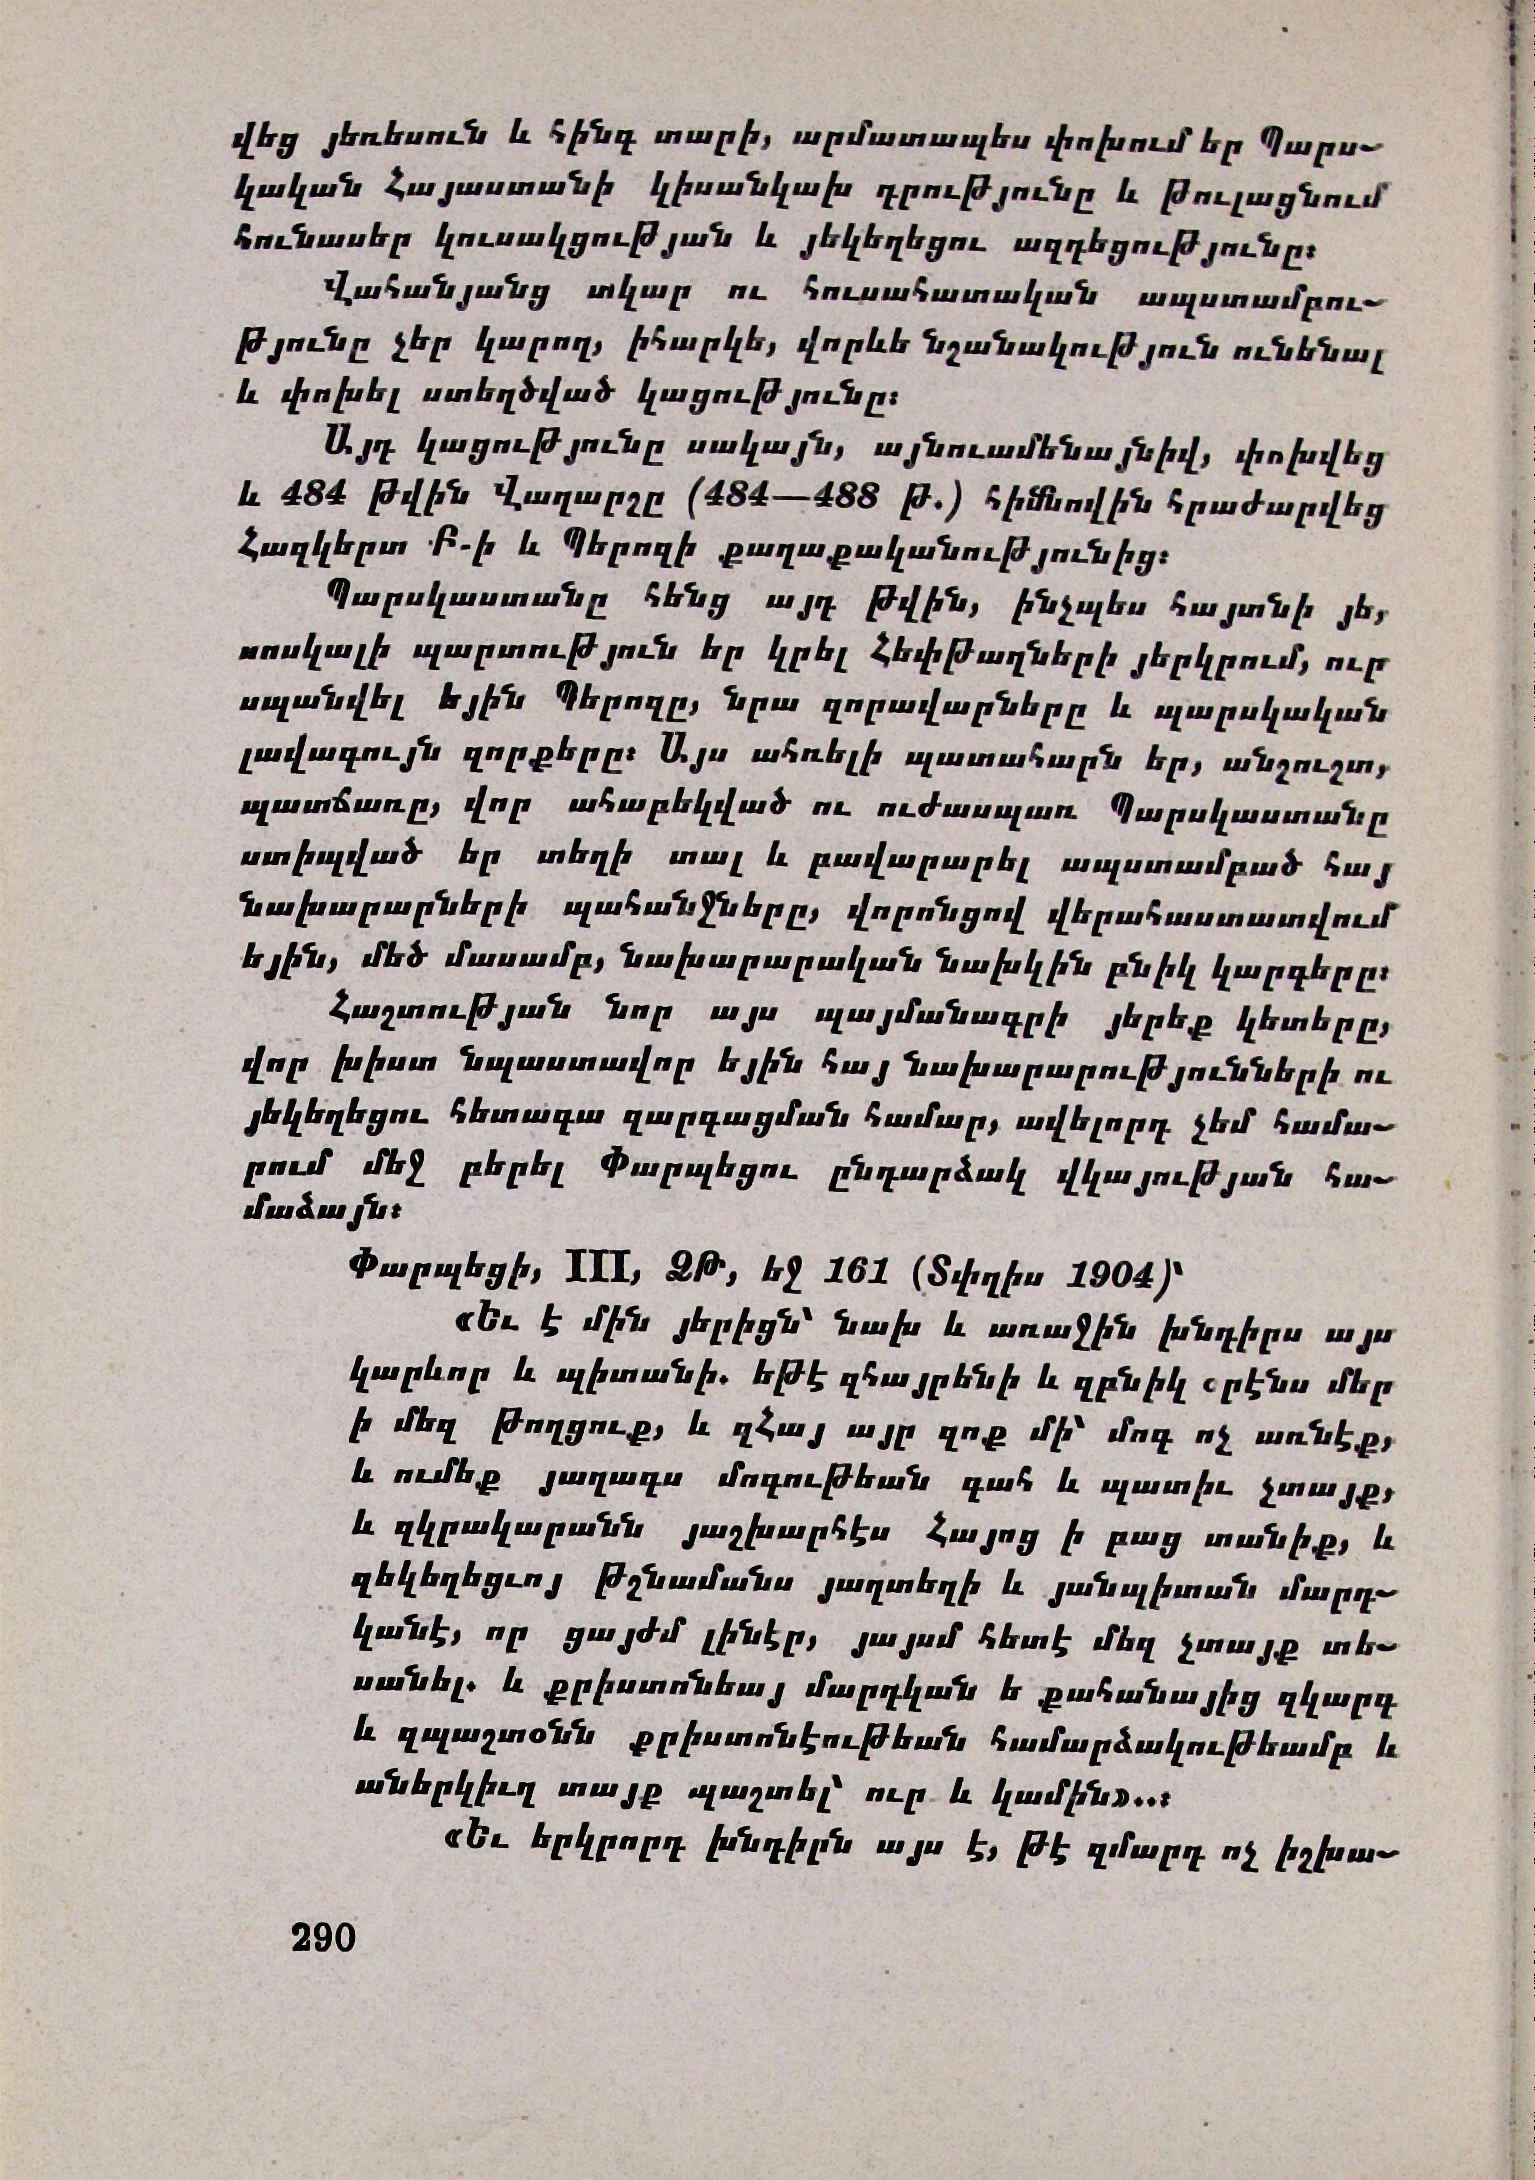 վեց յեռեսուն և հինգ տարի, արմատապես փոխում եր Պարս-
կական Հայաստանի կիսանկախ դրությունը և թուլացնում
հունասեր կուսակցության և յեկեղեցու ազդեցությունը։
Վահանյանց տկար ու հուսահատական ապստամբու-
թյունը չեր կարող, իհարկե, վորևե նշանակություն ունենալ
և փոխել ստեղծված կացությունը։
Այդ կացությունը սակայն, այնուամենայնիվ, փոխվեց
և 484 թվին Վաղարշը (484—488 թ.) հիմնովին հրաժարվեց
Հազկերտ Բ-ի և Պերոզի քաղաքականությունից։
Պարսկաստանը հենց այդ թվին, ինչպես հայտնի յե,
սոսկալի պարտություն եր կրել Հեփթաղների յերկրում, ուր
սպանվել եյին Պերոզը, նրա զորավարները և պարսկական
լավագույն զորքերը։ Այս ահռելի պատահարն եր, անշուշտ,
պատճառը, վոր ահաբեկված ու ուժասպառ Պարսկաստանը
ստիպված եր տեղի տալ և բավարարել ապստամբած հայ
նախարարների պահանջները, վորոնցով վերահաստատվում
եյին, մեծ մասամբ, նախարարական նախկին բնիկ կարգերը։
Հաշտության նոր այս պայմանագրի յերեք կետերը,
վոր խիստ նպաստավոր եյին հայ նախարարությունների ու
յեկեղեցու հետագա զարգացման համար, ավելորդ չեմ համա-
րում մեջ բերել Փարպեցու ընդարձակ վկայության հա-
մաձայն։
Փարպեցի, III, ՁԹ, եջ 161 (Տփղիս 1904)՝
«Եւ է մին յերիցն՝ նախ և առաջին խնդիրս այս
կարևոր և պիտանի. եթէ զհայրենի և զբնիկ օրէնս մեր
ի մեզ թողցուք, և զՀայ այր զոք մի՝ մոգ ոչ առնէք,
և ումեք յաղագս մոգութեան գահ և պատիւ չտայք,
և զկրակարանն յաշխարհէս Հայոց ի բաց տանիք, և
զեկեղեցւոյ թշնամանս յաղտեղի և յանպիտան մարդ-
կանէ, որ ցայժմ լինէր, յայսմ հետէ մեզ չտայք տե-
սանել. և քրիստոնեայ մարդկան ե քահանայից զկարգ
և զպաշտօնն քրիստոնէութեան համարձակութեամբ և
աներկիւղ տայք պաշտել՝ ուր և կամին»..։
«Եւ երկրորդ խնդիրն այս է, թէ զմարդ ոչ իշխա-
290